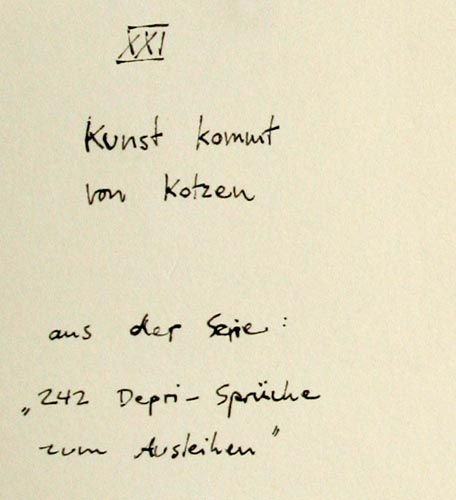 XXI
Kunst kommt
von Kotzen
aus der Serie:
„242 Depri-Sprüche
zum Ausleihen"